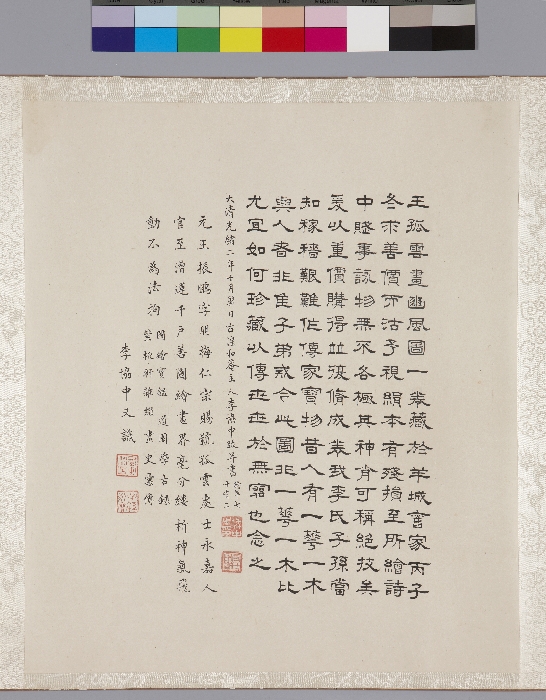 王孤雲畫豳風圖一卷藏於羊城舊家丙子
冬求善價而沽予視絹本有殘損至所繪詩
中賤事詠物無不各極其神肖可稱絕技矣
爰以重價購得並裝脩成卷我李氏子孫當
知稼穡艱難作傳家寶物昔人有一華一木
與人者非佳子弟今此圖非一華一木比
尤宜如何珍藏以傳世世於無窮也念之
大清光緒二年十月望日古主人李中並書
元王振鵬字朋梅仁宗賜號孤雲處士永嘉人
官至漕運千戶善圖繪畫界毫分縷析神氣飛
動不為法拘
圖繪寶鑑 道園學古錄
紫桃軒雜綴 畫史彙傳
李中又識